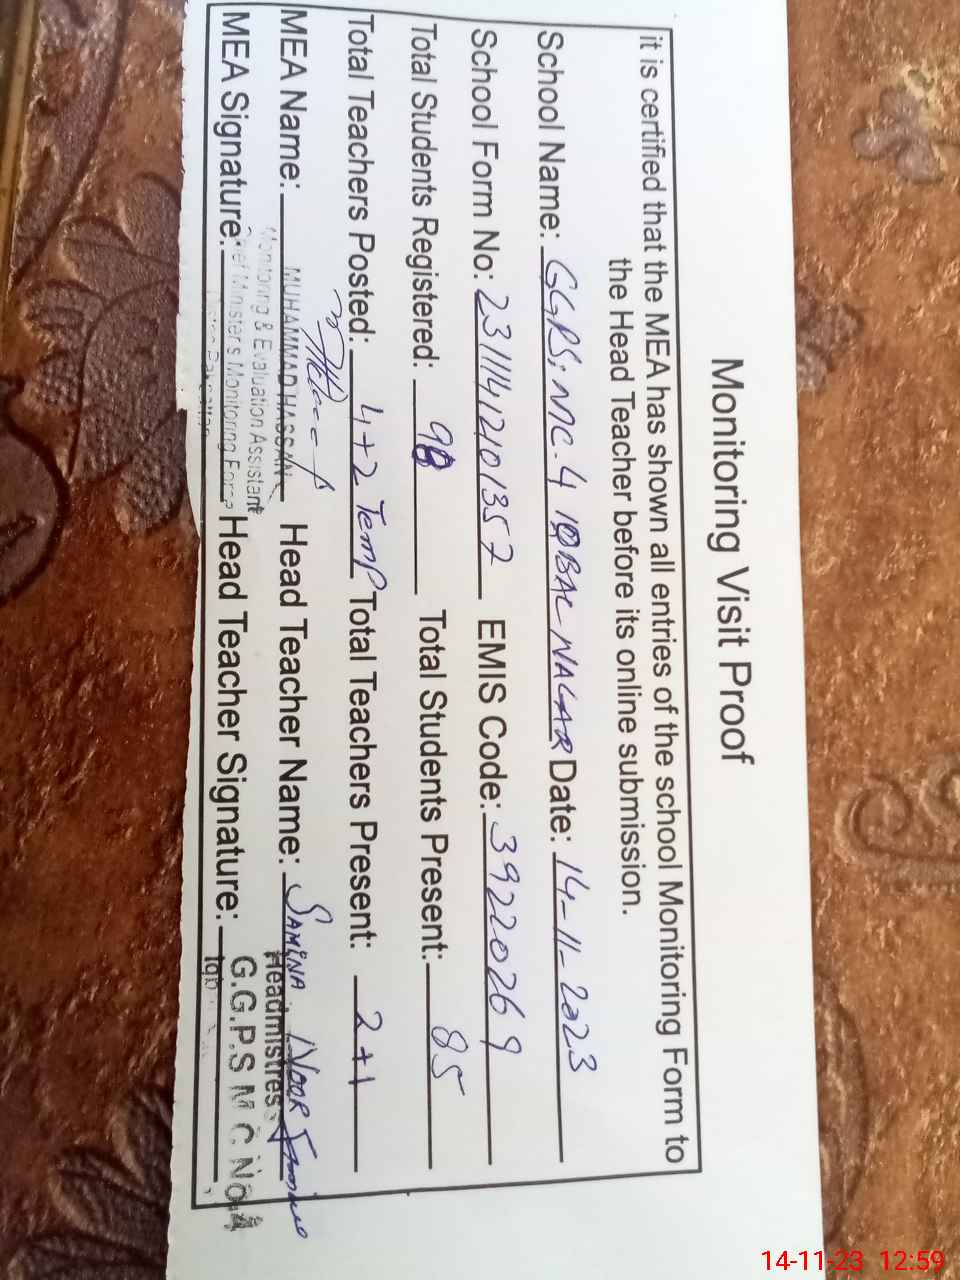 Monitoring Visit Proof
it is certified that the MEA has shown all entries of the school Monitoring Form to
the Head Teacher before its online submission.
School Name: GGPS; MC-4 IQBAL NAGAR Date: 14-11-2023
School Form No: 23111412101357 EMIS Code: 39220269
Total Students Registered: 98 Total Students Present: 85
Total Teachers Posted: 4+2 Temp Total Teachers Present: 2+1
MEA Name: MUHAMMAD HASSAN Head Teacher Name: SAMINA NOOR
Monitoring & Evaluation Assistant Headmistres
MEA Signature: Chief Minister's Monitoring Force Head Teacher Signature: G.G.P.S M C No.4
14-11-23 12:59